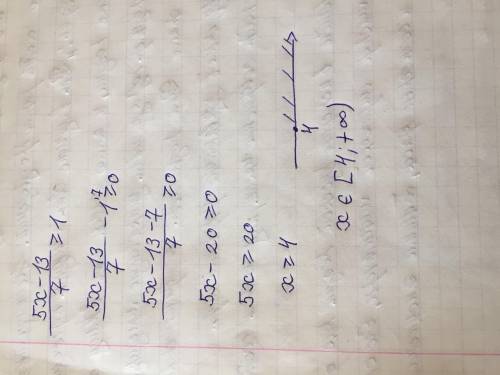 5x-13/7 ≥ 1
5x-13/7 - 1^7 ≥ 0
5x-13-7/7 ≥ 0
5x-20 ≥ 0
5x ≥ 20
x ≥ 4
4
x ∈ [4; +∞)